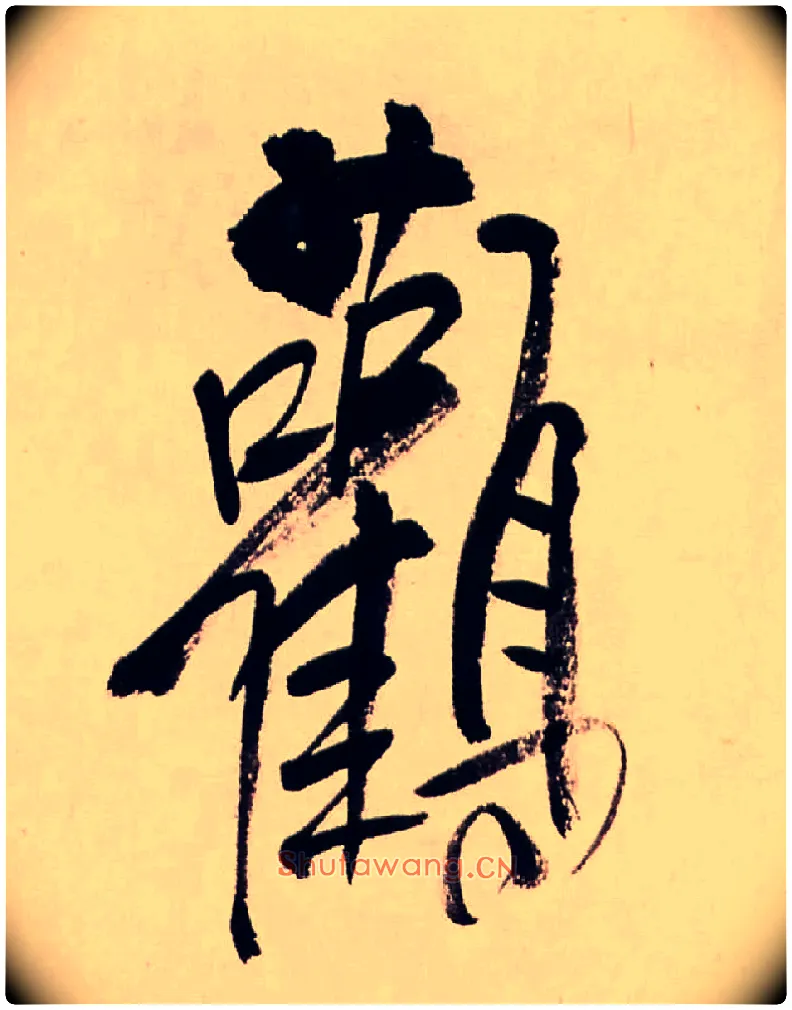 鸛
Shufawang.CN